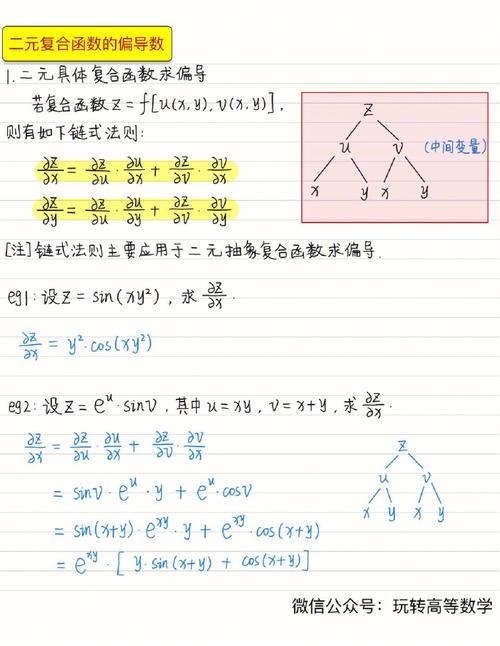 二元复合函数的偏导数
1.二元具体复合函数求偏导
若复合函数z=f[u(x,y),v(x,y)],
则有如下链式法则:
∂z/∂x=∂z/∂u·∂u/∂x+∂z/∂v·∂v/∂x
∂z/∂y=∂z/∂u·∂u/∂y+∂z/∂v·∂v/∂y
z
u v (中间变量)
x y x y
[注]链式法则主要应用于二元抽象复合函数求偏导.
eg1:设z=sin(xy²),求∂z/∂x.
∂z/∂x=y²·cos(xy²)
eg2:设z=eᵘ·sinv,其中u=xy,v=x+y,求∂z/∂x.
∂z/∂x=∂z/∂u·∂u/∂x+∂z/∂v·∂v/∂x
=sinv·eᵘ·y+eᵘ·cosv
=sin(x+y)·e^{xy}·y+e^{xy}·cos(x+y)
=e^{xy}·[y·sin(x+y)+cos(x+y)]
z
u v
x y x y
微信公众号:玩转高等数学